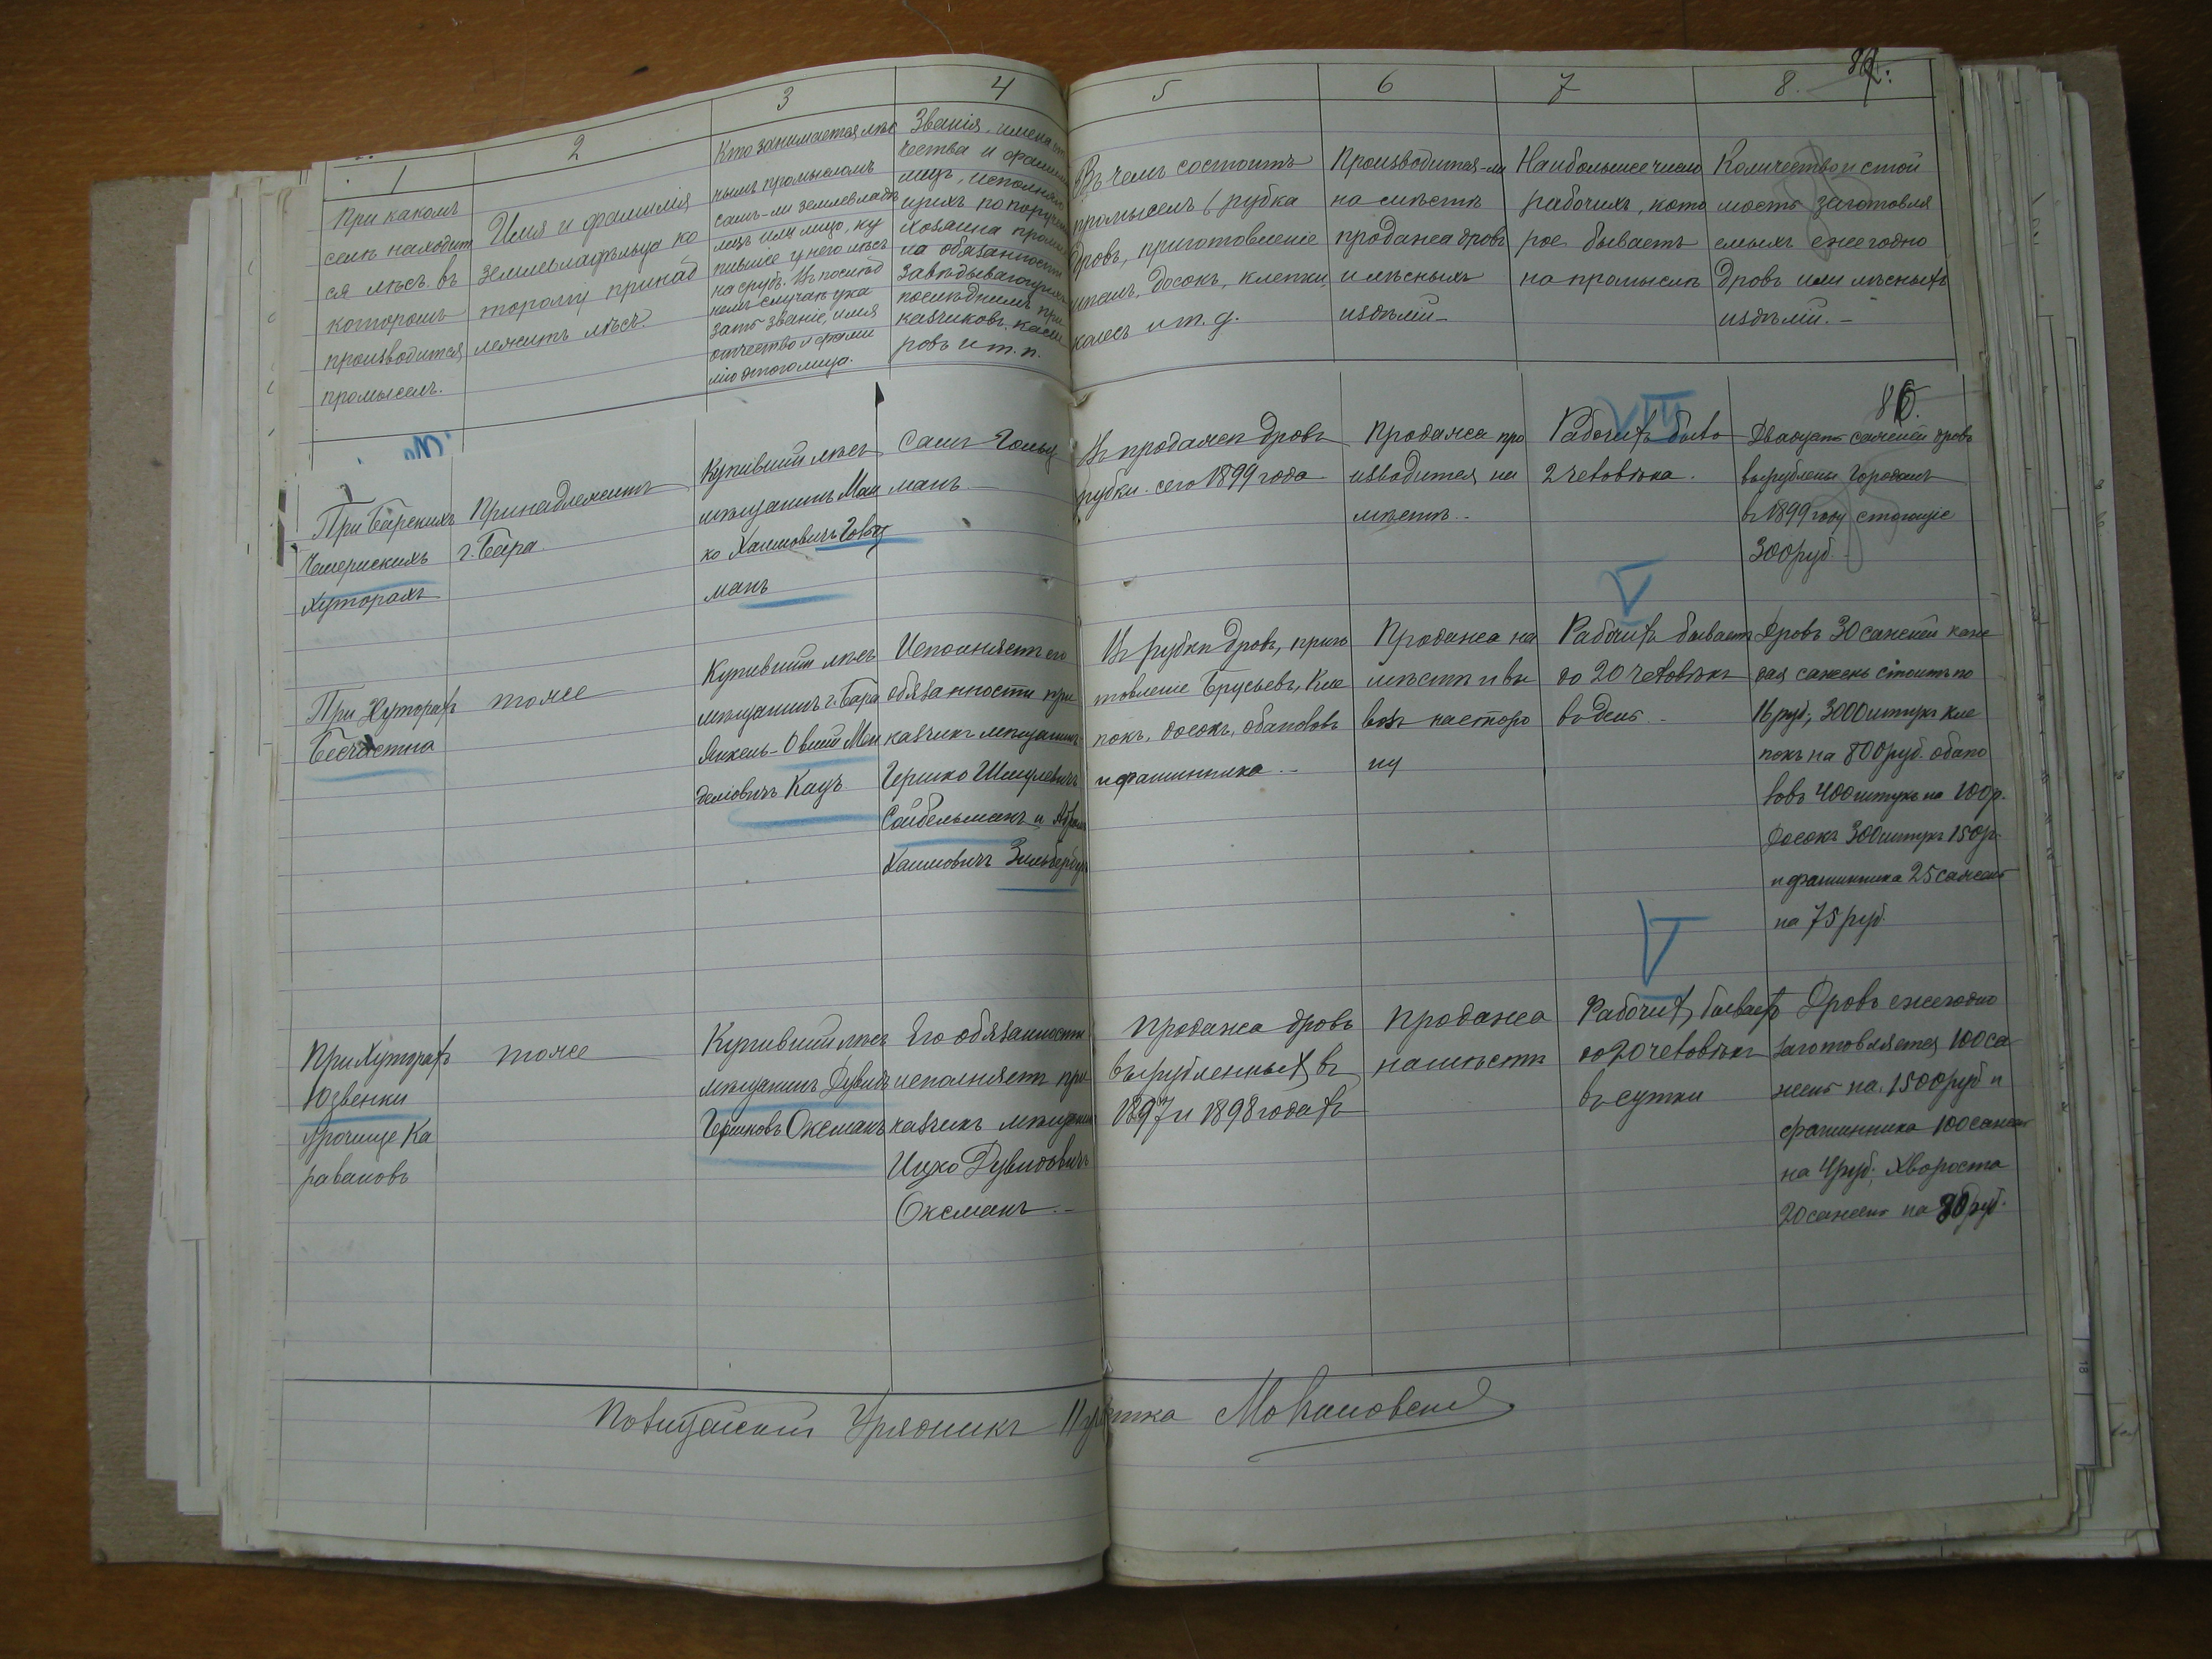 1
2
3
4
5
6
7
8.
При какомъ
селѣ находит
ся лѣсъ въ
которомъ
производится
промыселъ.
Имя и фамилія
землевладѣльца ко
торому принад
лежитъ лѣсъ.
Кто занимается лѣс
нымъ промысломъ
самъ-ли землевладѣ
лецъ или лицо, ку
пившее у него лѣсъ
на срубъ. Въ послѣд
немъ случаѣ ука
зать званіе, имя
отчество и фами
лію этого лица.
Званія, имена от
чества и фамиліи
лицъ, исполняю
щихъ по поруч
хозяина промы
ла обязанности
завѣдывающихъ
послѣднимъ при
казчиковъ, касси
ровъ и т. п.
Въ чемъ состоитъ
промыселъ (рубка
дровъ, приготовленіе
шпалъ, досокъ, клепки,
колесъ и т. д.
Производится-ли
на мѣстѣ
продажа дровъ
и лѣсныхъ
издѣлій
Наибольшее число
рабочихъ, кото
рое бываетъ
на промыслѣ
Количество и стои
мость заготовля
емыхъ ежегодно
дровъ или лѣсныхъ
издѣлій. –
VIII
86.
При Барскихъ
Чемерискихъ
Хуторахъ
Принадлежитъ
г. Бара
Купивший лѣсъ
мѣщанинъ Мош
ко Хаимовичъ Гольц
манъ
Самъ Гольц
манъ
Въ продажѣ дровъ
рубки сего 1899 года
Продажа про
изводится на
мѣстѣ.
Рабочихъ было
2 человѣка.
Двадцать саженей дровъ
вырублены городомъ
въ 1899 году стоющіе
300 руб.
V
При Хуторахъ
Бесчастна
тоже
Купивший лѣсъ
мѣщанинъ г. Бара
Янкель-Овший Мен
деліовичъ Кацъ
Исполняетъ его
обязанности при
казчикъ мѣщанинъ
Гершко Шмулевичъ
Сойбельманъ и Абрамъ
Хаимовичъ
Въ рубкѣ дровъ, приго
товленіе брусьевъ, кле
покъ, досокъ, обаполовъ
и фашинника. –
Продажа на
мѣстѣ и вы
возъ на сторо
ну
Рабочихъ бываетъ
до 20 человѣкъ
въ день
Дровъ 30 саженей каж
дая сажень стоитъ по
16 руб., 3000 штукъ кле
покъ на 800 руб. обапо
ловъ 400 штукъ на 100 р.
досокъ 300 штукъ 150 р.
и фашинника 25 сажень
на 75 руб.
V
При Хуторахъ
Юзвенки
урочище Ка
равановъ
тоже
Купивший лѣсъ
мѣщанинъ Дувидъ
Гершковъ Оксманъ
Его обязанности
исполняетъ при
казчикъ мѣщанинъ
Ицко Дувидовичъ
Оксманъ. –
Продажа дровъ
вырубленныхъ въ
1897 и 1898 годахъ
Продажа
на мѣстѣ
Рабочихъ бываетъ
до 20 человѣкъ
въ сутки
Дровъ ежегодно
заготовляется 100 са
жень на 1500 руб и
фашинника 100 сажень
на руб; хвороста
20 сажень на 80 руб.
Полицейскій Урядникъ 11 участка